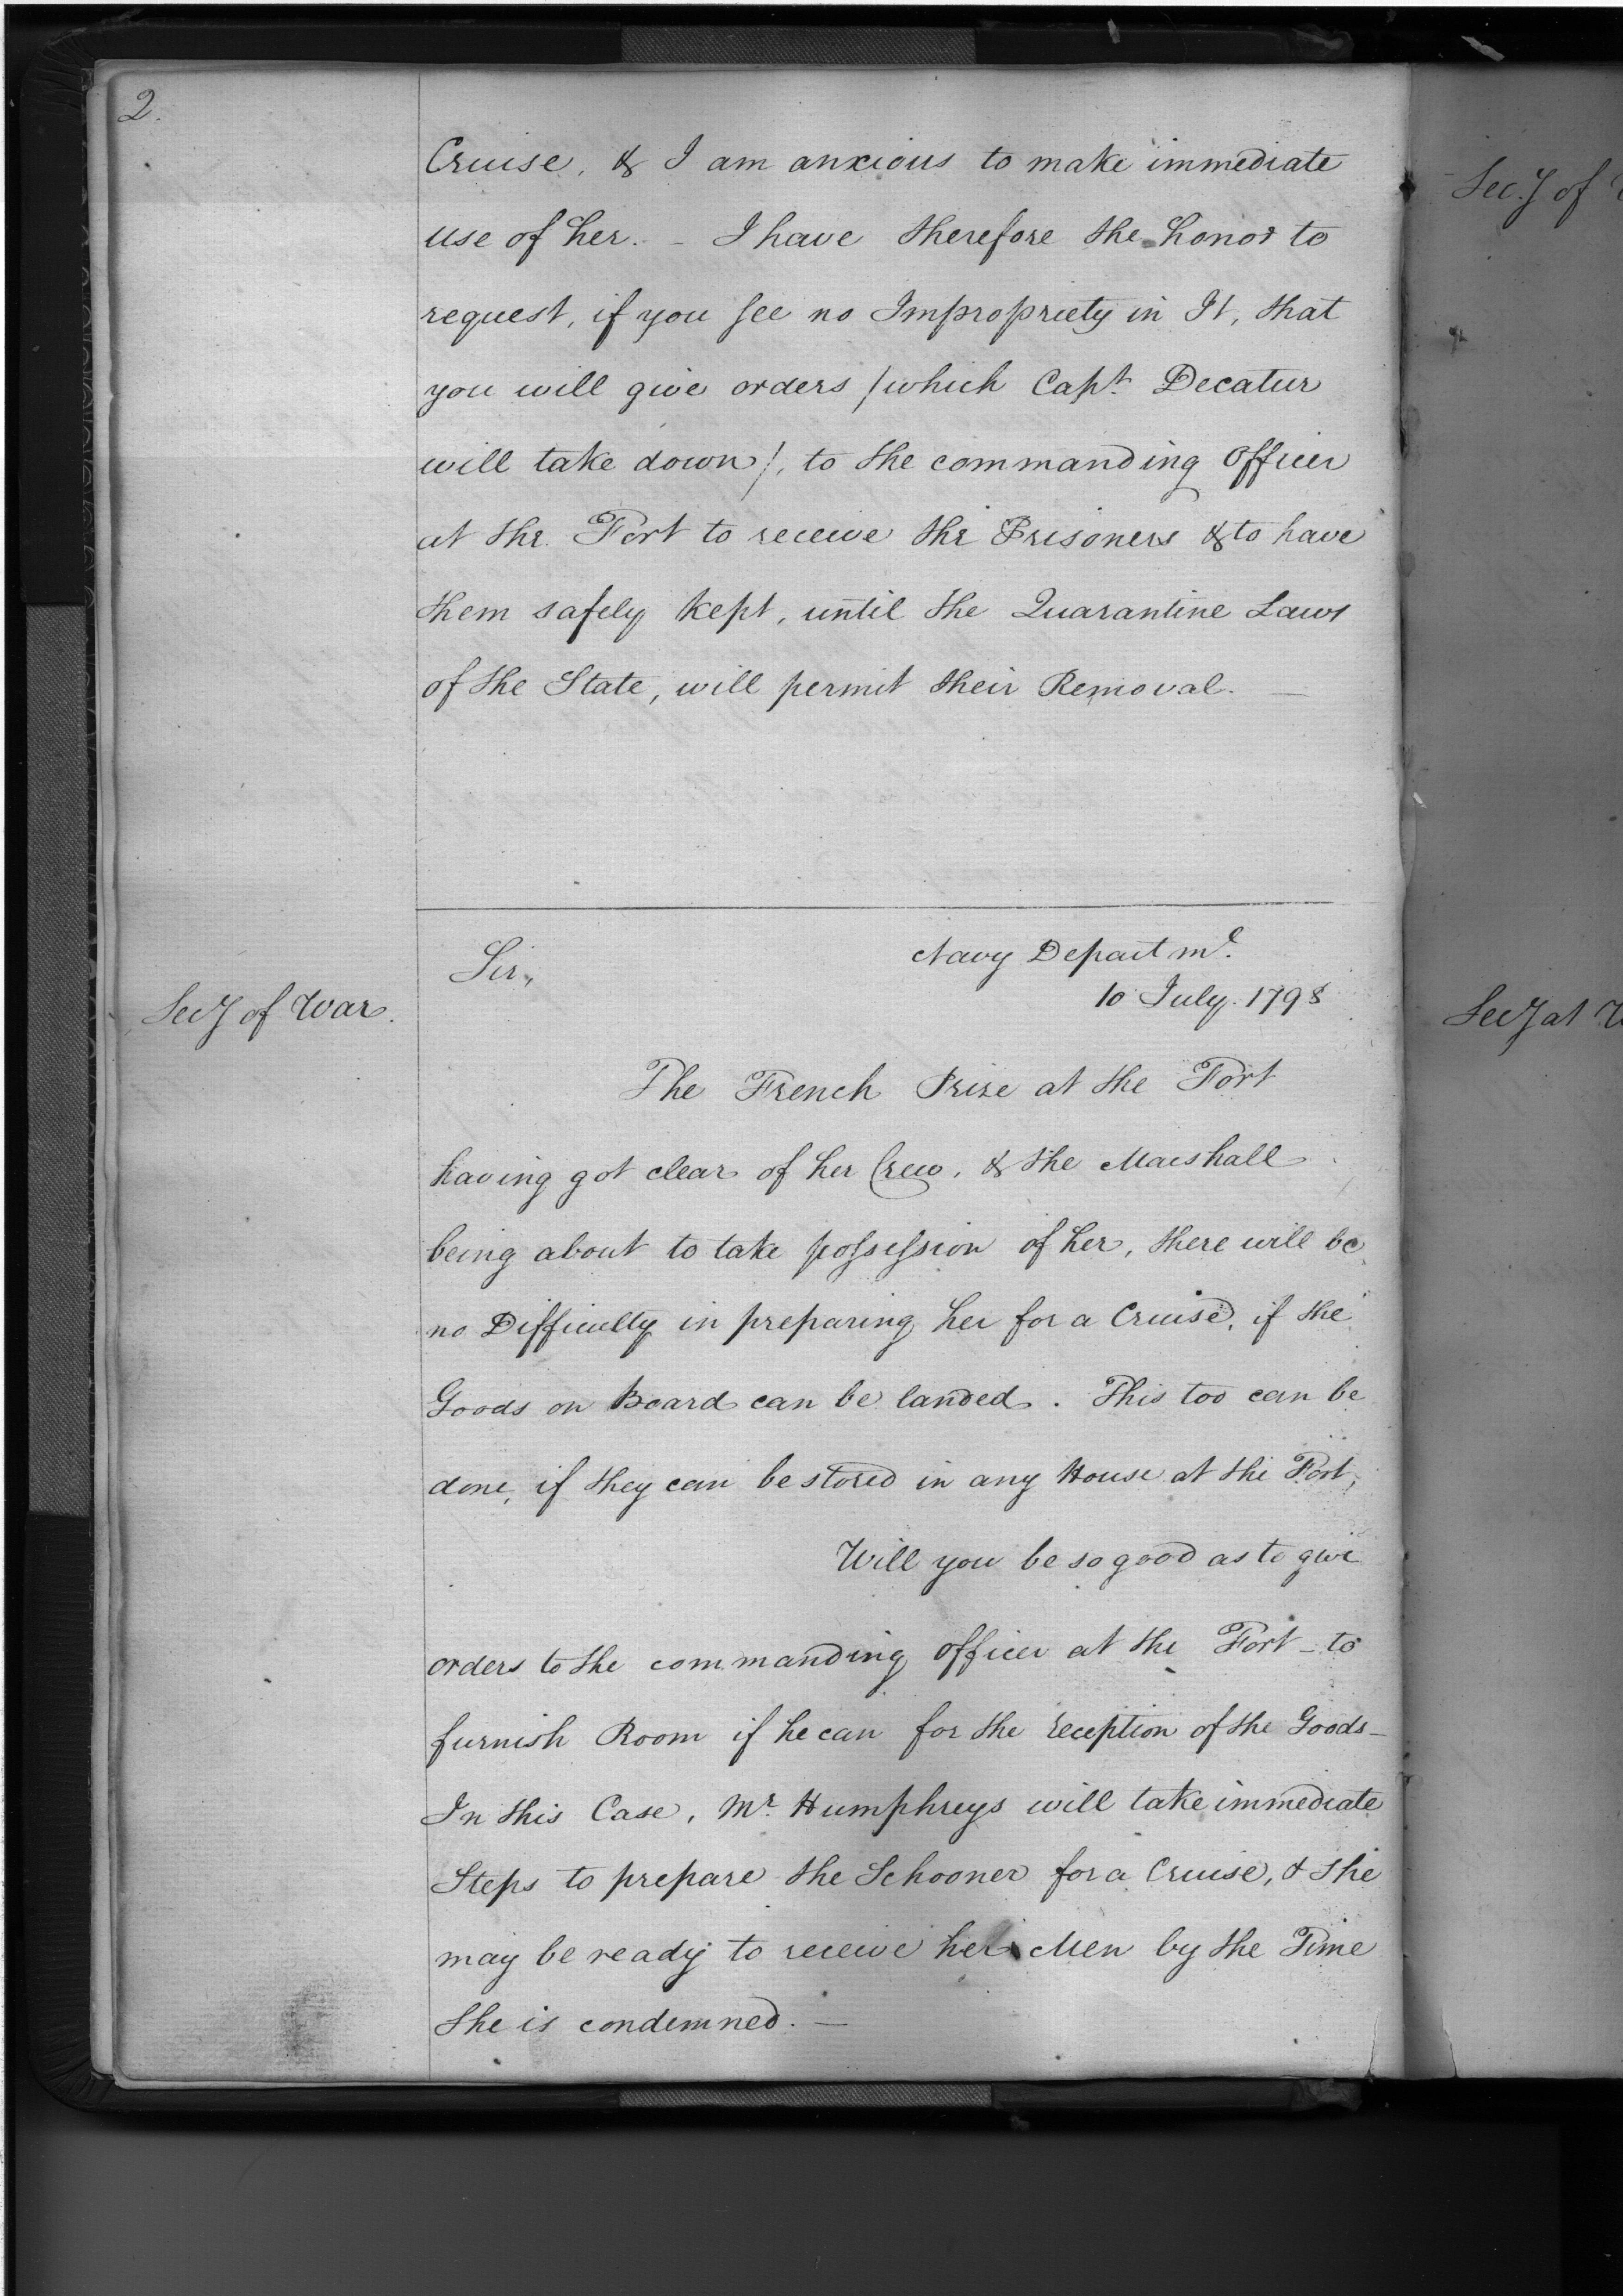 2.
Cruise, & I am anxious to make immediate
use of her. - I have therefore the honor to
request, if you see no Impropriety in It, that
you will give orders /which Capt. Decatur
will take down/, to the commanding Officer
at the Fort to receive the Prisoners & to have
them safely kept, until the Quarantine Laws
of the State, will permit their Removal. —
Sir,
Navy Departmt.
10 July. 1798
Secy of War.
The French Prize at the Fort
having got clear of her Crew, & the Marshall
being about to take possession of her, there will be
no Difficulty in preparing her for a Cruise, if the
Goods on Board can be landed. This too can be
done, if they can be stored in any House at the Fort,
Will you be so good as to give
orders to the commanding Officer at the Fort - to
furnish Room if he can for the reception of the Goods -
In this Case, Mr. Humphreys will take immediate
Steps to prepare the Schooner for a Cruise, & she
may be ready to receive her Men by the Time
She is condemned. —
Secy of
Secy at